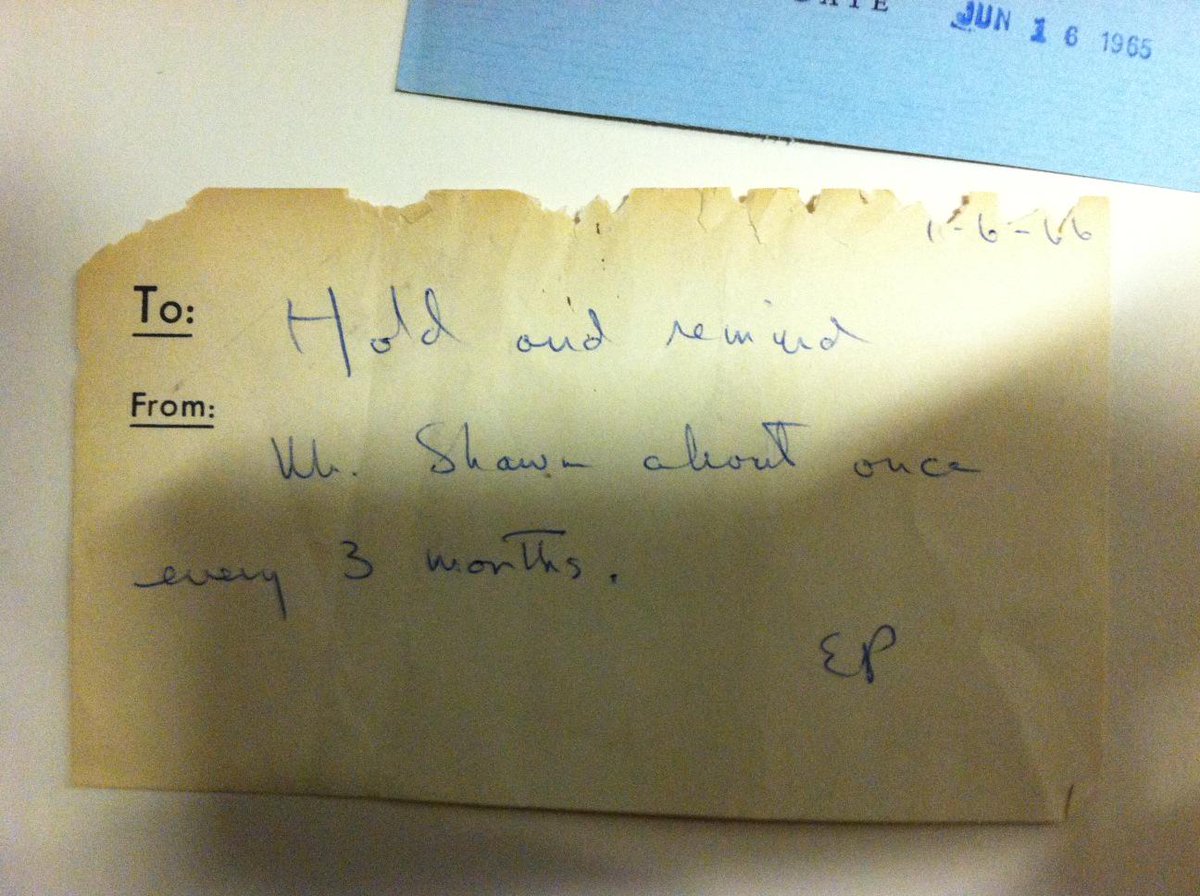 DATE JUN 16 1965
-6-66
To: Hold and remind
From:
Mr. Shawn about once
every 3 months.
EP